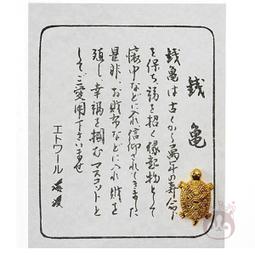 銭亀
銭亀は古くから萬年の寿命
を保ち福を招く縁起物として
懐中などに入れ信仰されてきました
是非、お財布などに入れ財を
殖し幸福を掴むマスコットと
してご愛用下さいませ
エトワール